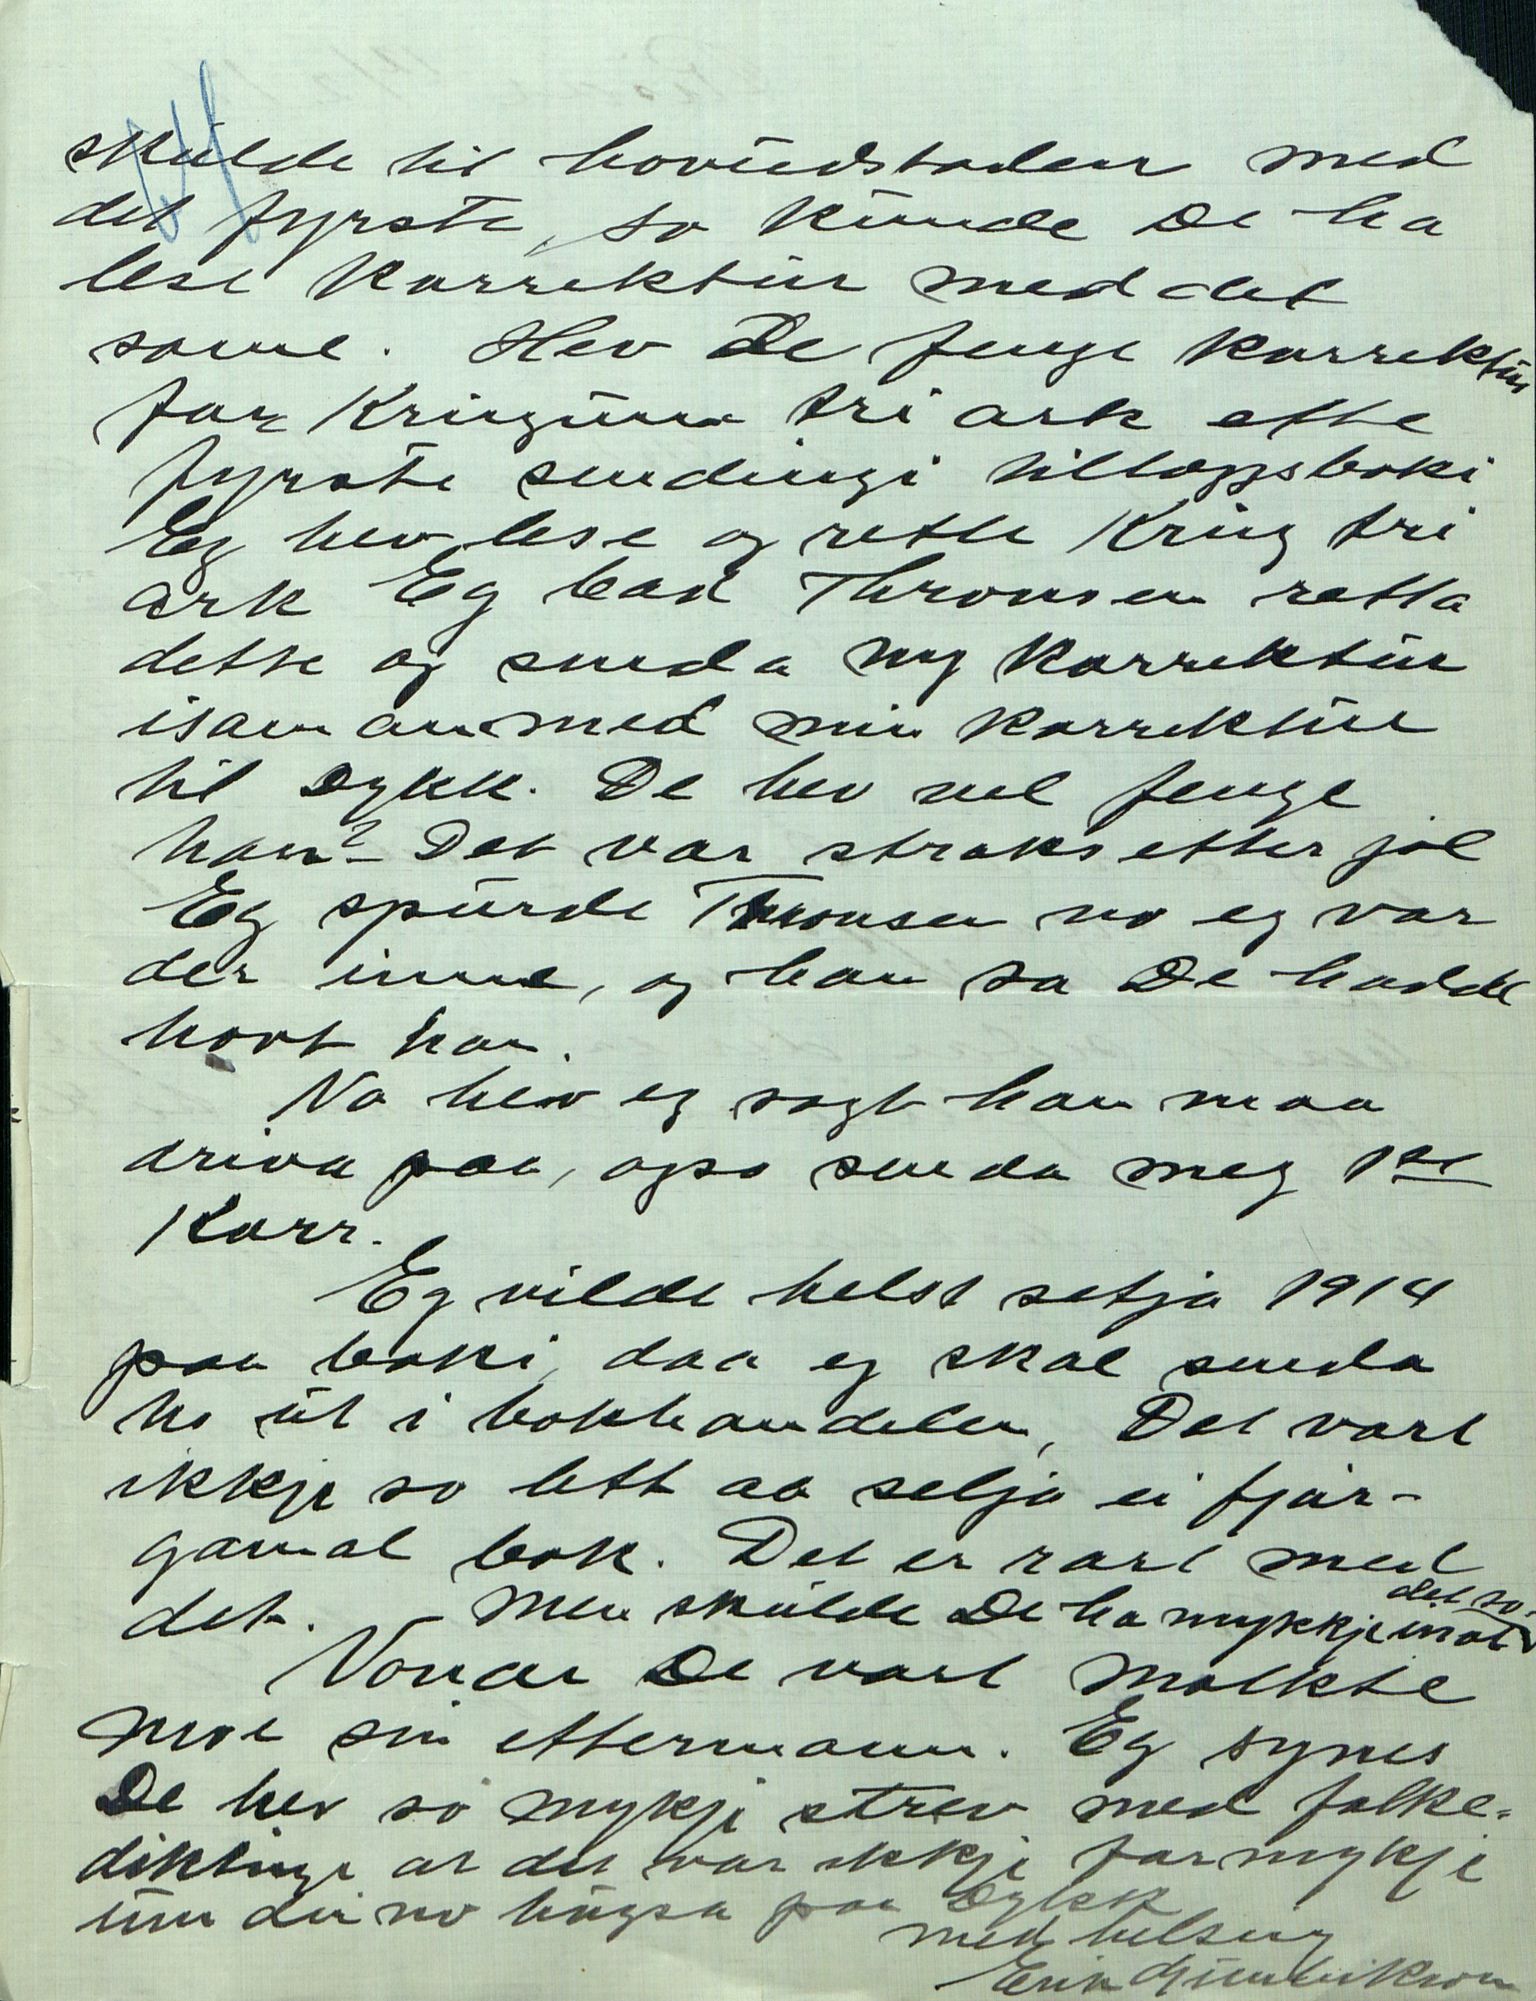 skulde til hovudstaden med
det fyrste, so kunde De ha
lese korrektur med det
same. Hev De fenge korrektur
for Kringum tri ark ette
fyrste sendingi tilleggsboki
Eg hev lese og rette Kring tri
ark Eg bad Thronsen retta
dette og senda ny korrektur
isaman med min korrektur
til Dykk. De hev vel fenge
han? – Det var straks etter jol
Eg spurde Thronsen no eg var
der inne, og han sa De hadde
havt han.
No hev eg sagt han maa
driva paa, ogso senda meg 1ste
Korr.
Eg vilde helst setja 1914
paa boki, daa eg skal senda
ho ut i bokhandelen, Det vart
ikkje so lett aa selja ei fjor-
gamal bok. Det er rart med
det. Men skulde De ha mykkje imot
det so.
Vonar De vart Moltke
Moe sin ettermann. Eg synes
De hev so mykje strev med folke-
diktingi at det var ikkje for mykje
um dei no hugsa paa Dykk
med helsing
Erik Gundrikson